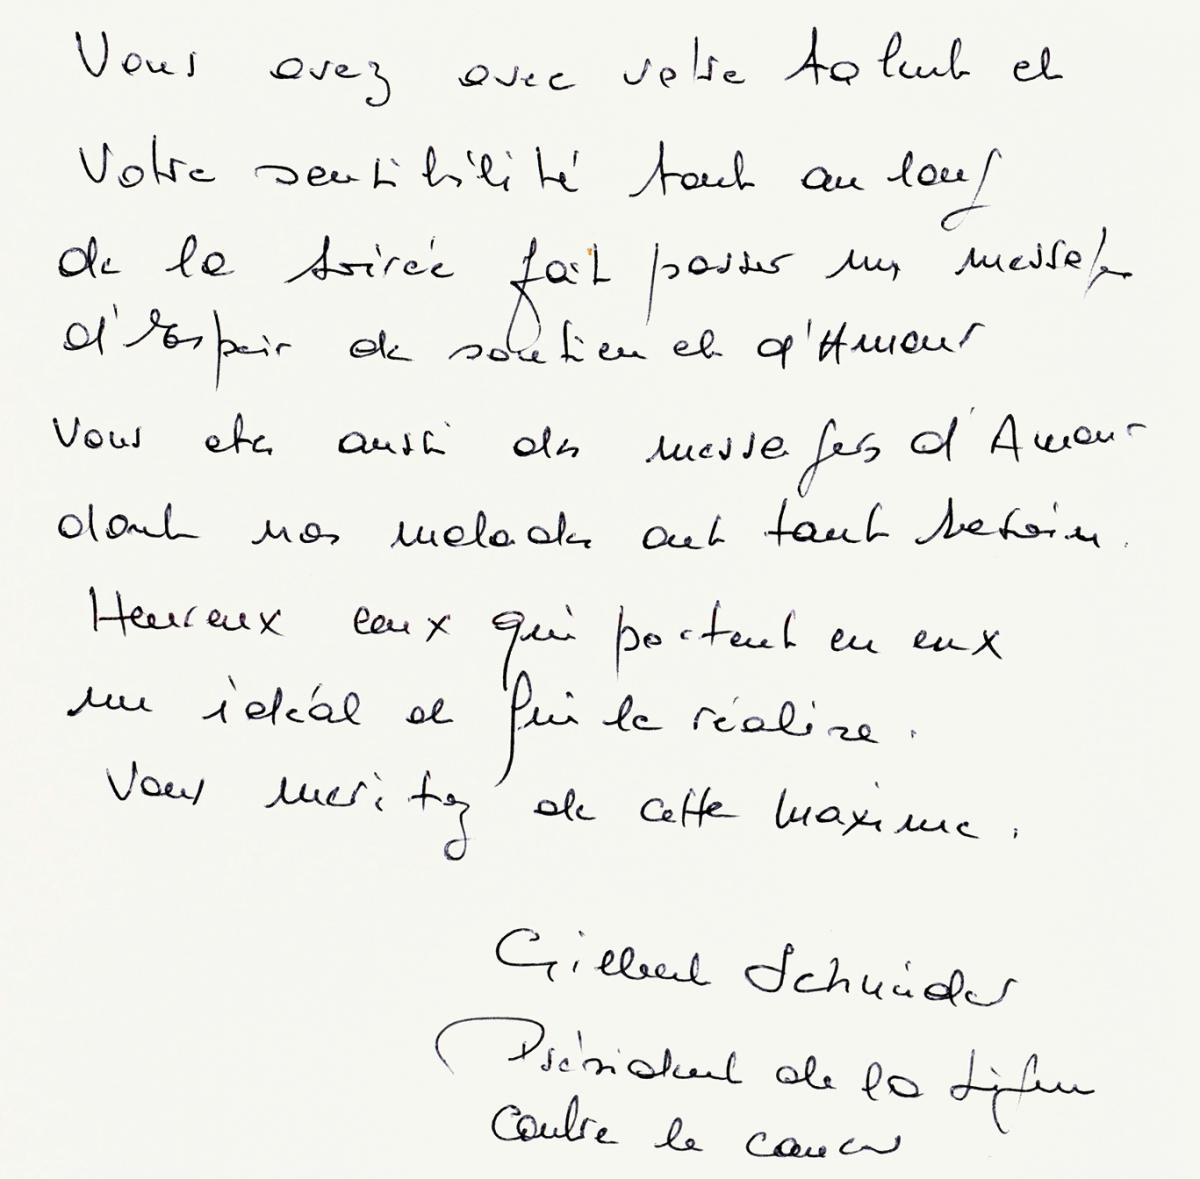 Vous avez avec votre talent et
votre sensibilité tout au long
de la soirée fait passer un message
d'Espoir de soutien et d'Amour
Vous etes aussi des messages d'Amour
dont nos malades ont tant besoin.
Heureux ceux qui portent en eux
un idéal et qui le réalise.
Vous meritez de cette maxime.
Gilbert Schneider
Président de la Ligue
contre le cancer